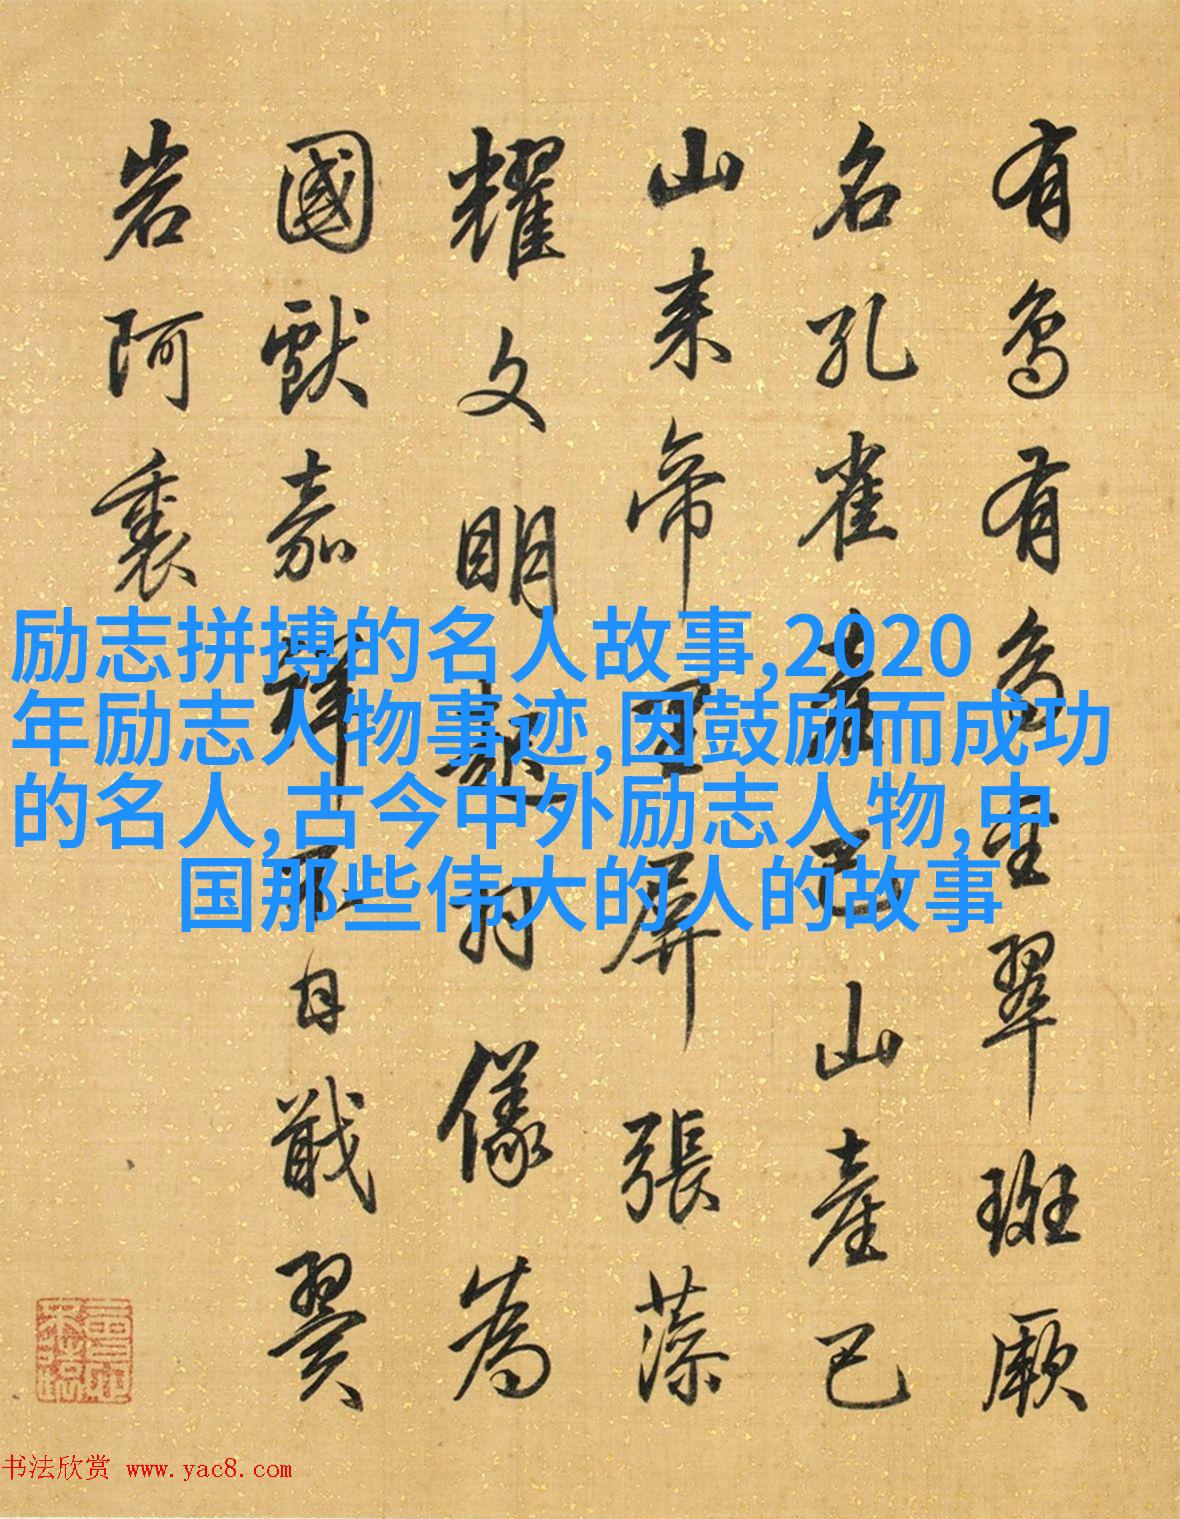 有鳥有鳥金翠斑厥
名孔雀產巴山產巴
山來帝王屏張藻
耀文明起羽儀為
國獻嘉祥不日戢翼
岩阿裏
励志拼搏的名人故事,2020
年励志人物事迹,因鼓励而成功
的名人,古今中外励志人物,中
国那些伟大的人的故事
书法欣赏 www.yac8.com